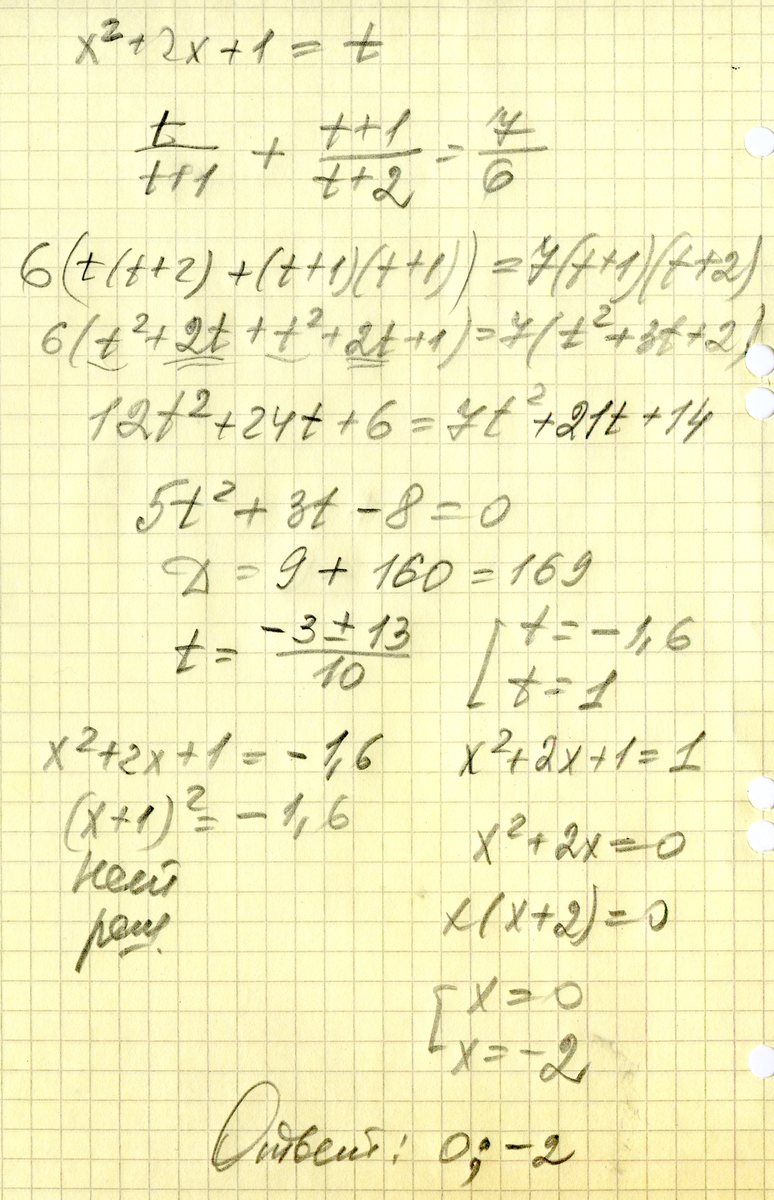 x² + 2x + 1 = t
t/(t+1) + (t+1)/(t+2) = 7/6
6(t(t+2) + (t+1)(t+1)) = 7(t+1)(t+2)
6(t² + 2t + t² + 2t + 1) = 7(t² + 3t + 2)
12t² + 24t + 6 = 7t² + 21t + 14
5t² + 3t - 8 = 0
D = 9 + 160 = 169
t = (-3 ± 13)/10 [ t = -1,6
t = 1
x² + 2x + 1 = -1,6
(x+1)² = -1,6
нет
реш.
x² + 2x + 1 = 1
x² + 2x = 0
x(x+2) = 0
[ x = 0
x = -2
Ответ: 0; -2